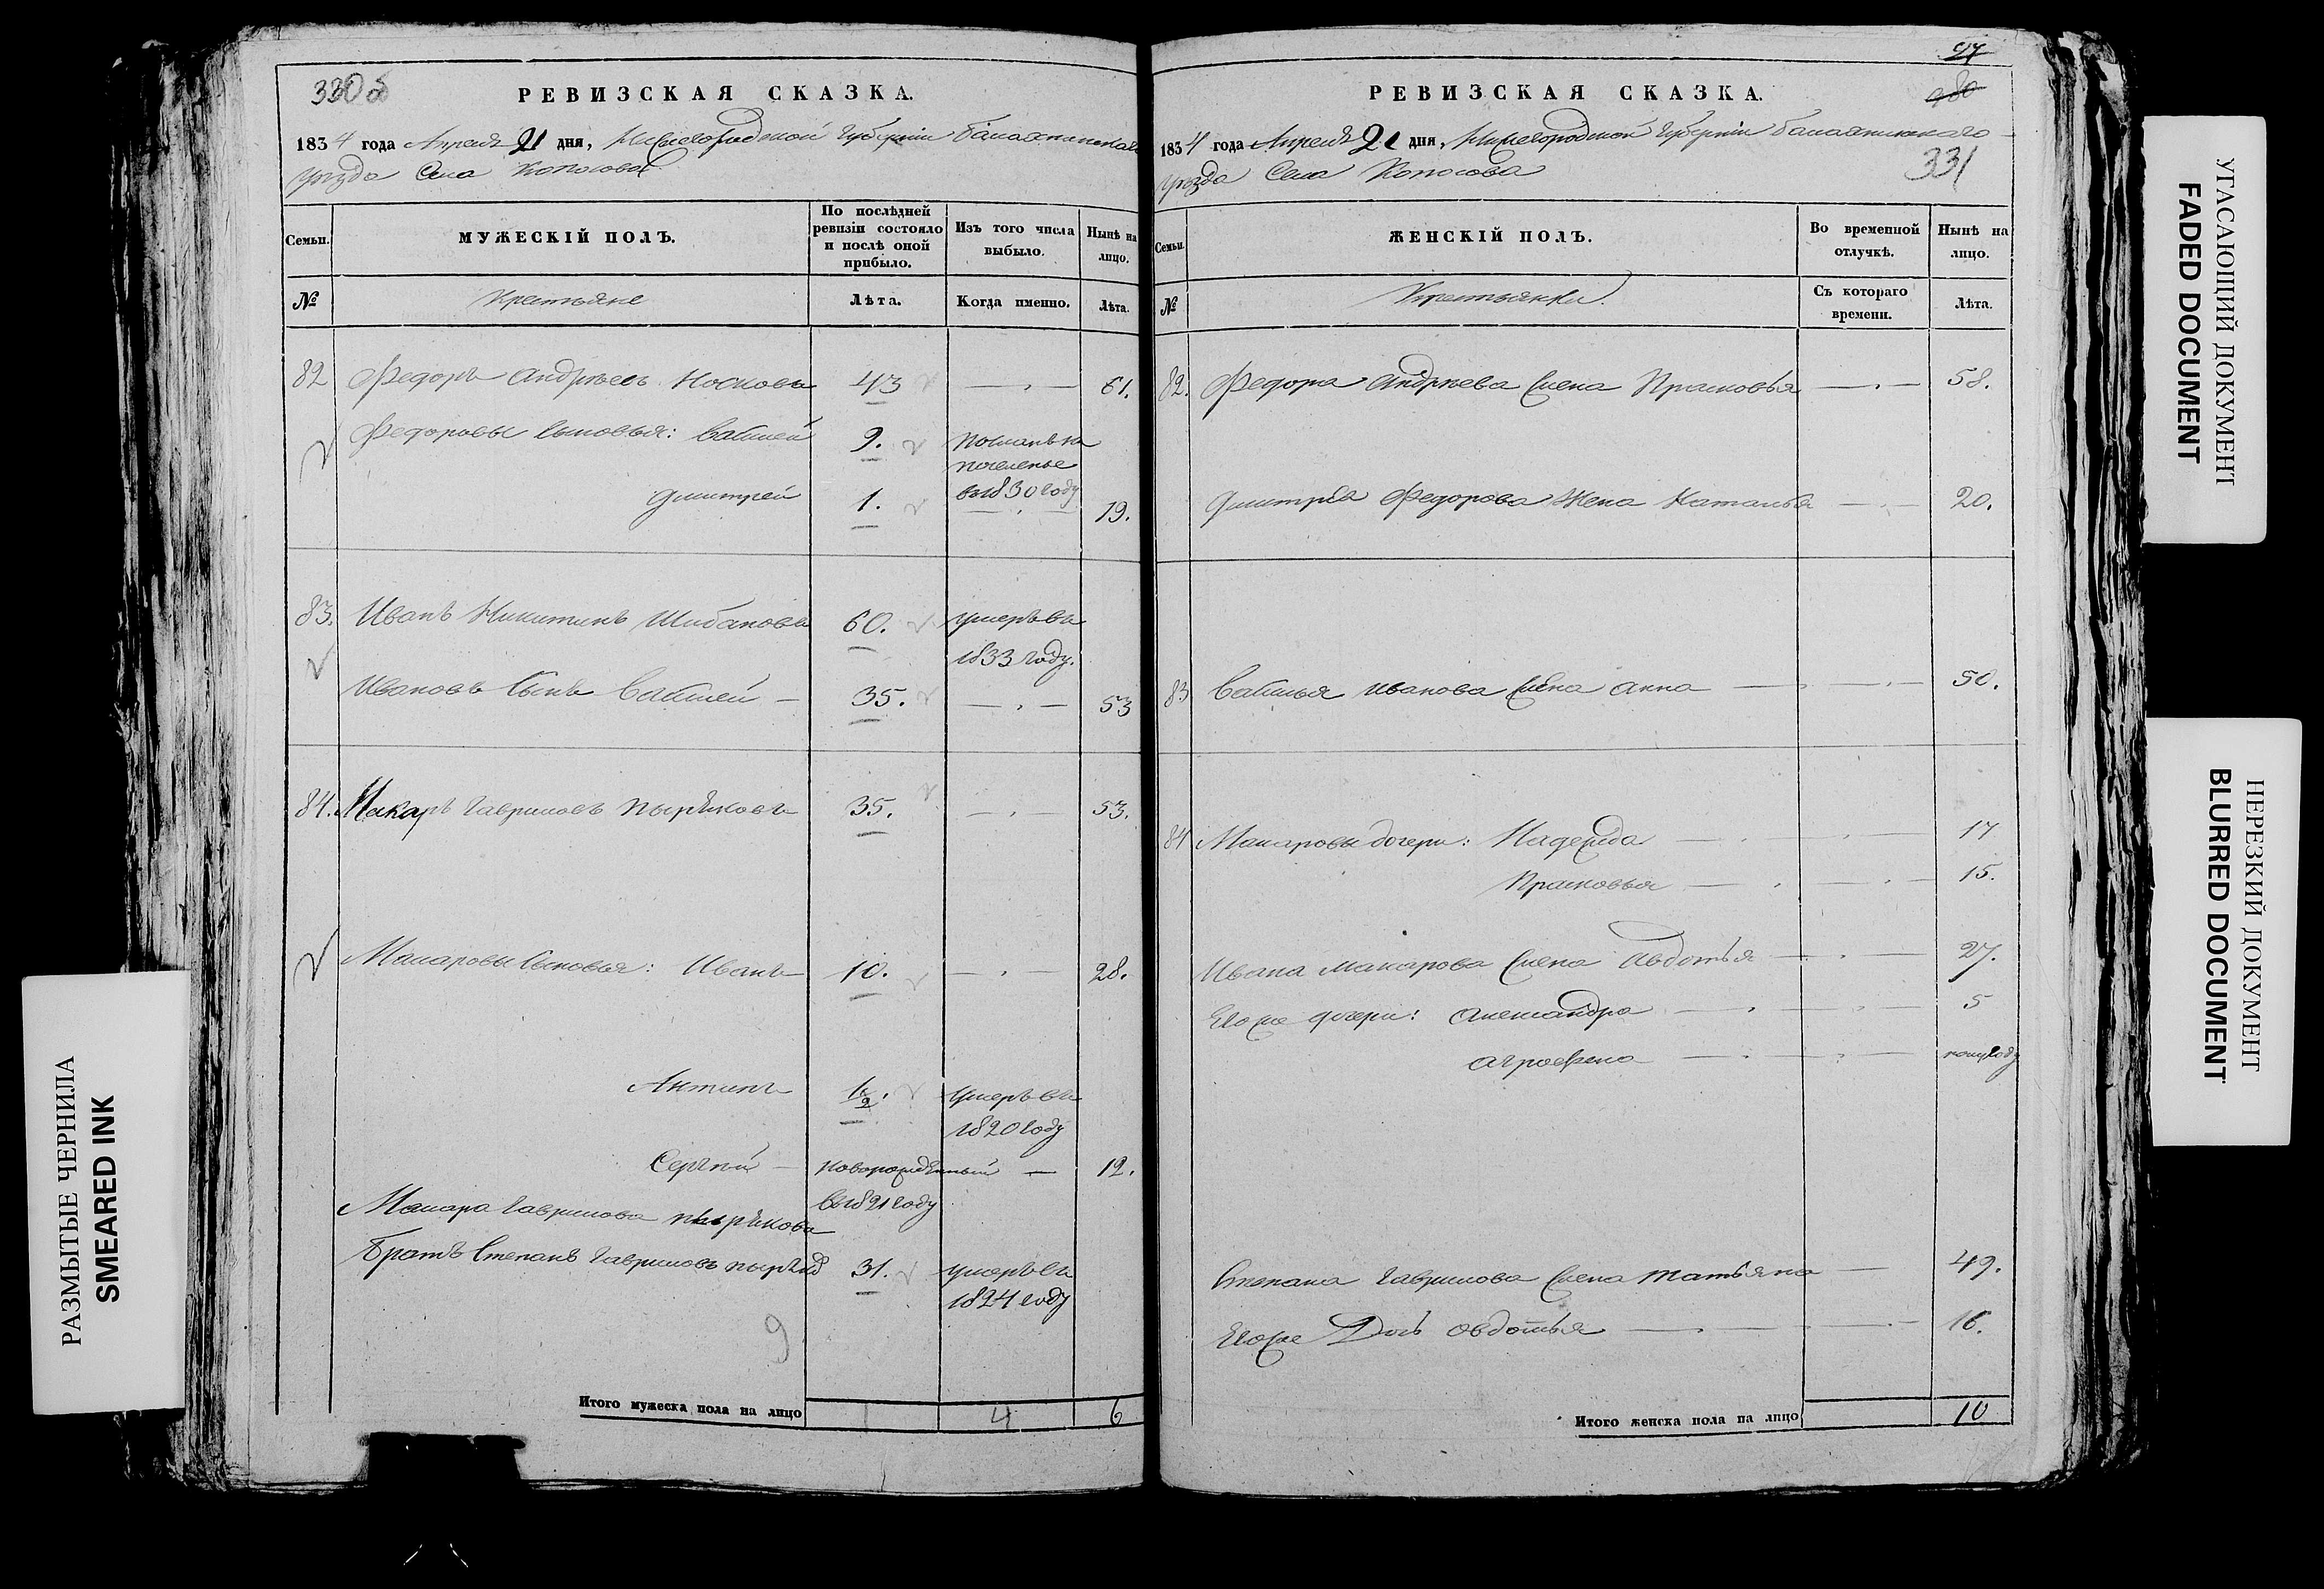 330 об
РЕВИЗСКАЯ СКАЗКА.
1834 года Апреля 21 дня, Нижегородской Губернии Балахнинскаго
уезда Села Копосова
Семьи.
МУЖЕСКІЙ ПОЛЪ.
По послѣдней ревизіи состояло и послѣ оной прибыло.
Изъ того числа выбыло.
Нынѣ на лицо.
№
Крестьяне
Лѣта.
Когда именно.
Лѣта.
82 Федоръ Андрѣевъ Носковъ 43 — 61.
Федоровы сыновья: Василей 9. посланъ на
поселенье
въ 1830 году
Дмитрей 1. — 19.
83. Иванъ Никитинъ Шибановъ 60. умеръ въ
1833 году.
Ивановъ сынъ Василей — 35. — 53
84. Макаръ Гавриловъ Пырѣковъ 35. — 53.
Макаровы сыновья: Иванъ 10. — 28.
Антипъ 1/2. умеръ въ
1820 году
Сергѣй — новорожденный — 12.
въ 1821 году
Макара Гаврилова Пырѣкова
братъ Степанъ Гавриловъ 31. умеръ въ
1824 году
9
Итого мужеска пола на лицо 4 6
980
РЕВИЗСКАЯ СКАЗКА.
1834 года Апреля 21 дня, Нижегородской Губернии Балахнинскаго
уезда Села Копосова
331
Семьи.
ЖЕНСКІЙ ПОЛЪ.
Во временной отлучкѣ.
Нынѣ на лицо.
№
Крестьянки.
Съ котораго времени.
Лѣта.
82. Федора Андрѣева жена Прасковья — 58.
Дмитрѣя Федорова жена Наталья — 20.
83 Василья Иванова жена Анна — 50.
84 Макаровы дочери: Надежда — 17
Прасковья — 15.
Ивана Макарова жена Авдотья — 27.
Его же дочери: Александра — 5
Аграфена — полугоду
Степана Гаврилова жена Татьяна — 49.
Его же Дочь Овдотья — 16.
Итого женска пола на лицо 10
УГАСАЮЩИЙ ДОКУМЕНТ
FADED DOCUMENT
НЕРЕЗКИЙ ДОКУМЕНТ
BLURRED DOCUMENT
РАЗМЫТЫЕ ЧЕРНИЛА
SMEARED INK